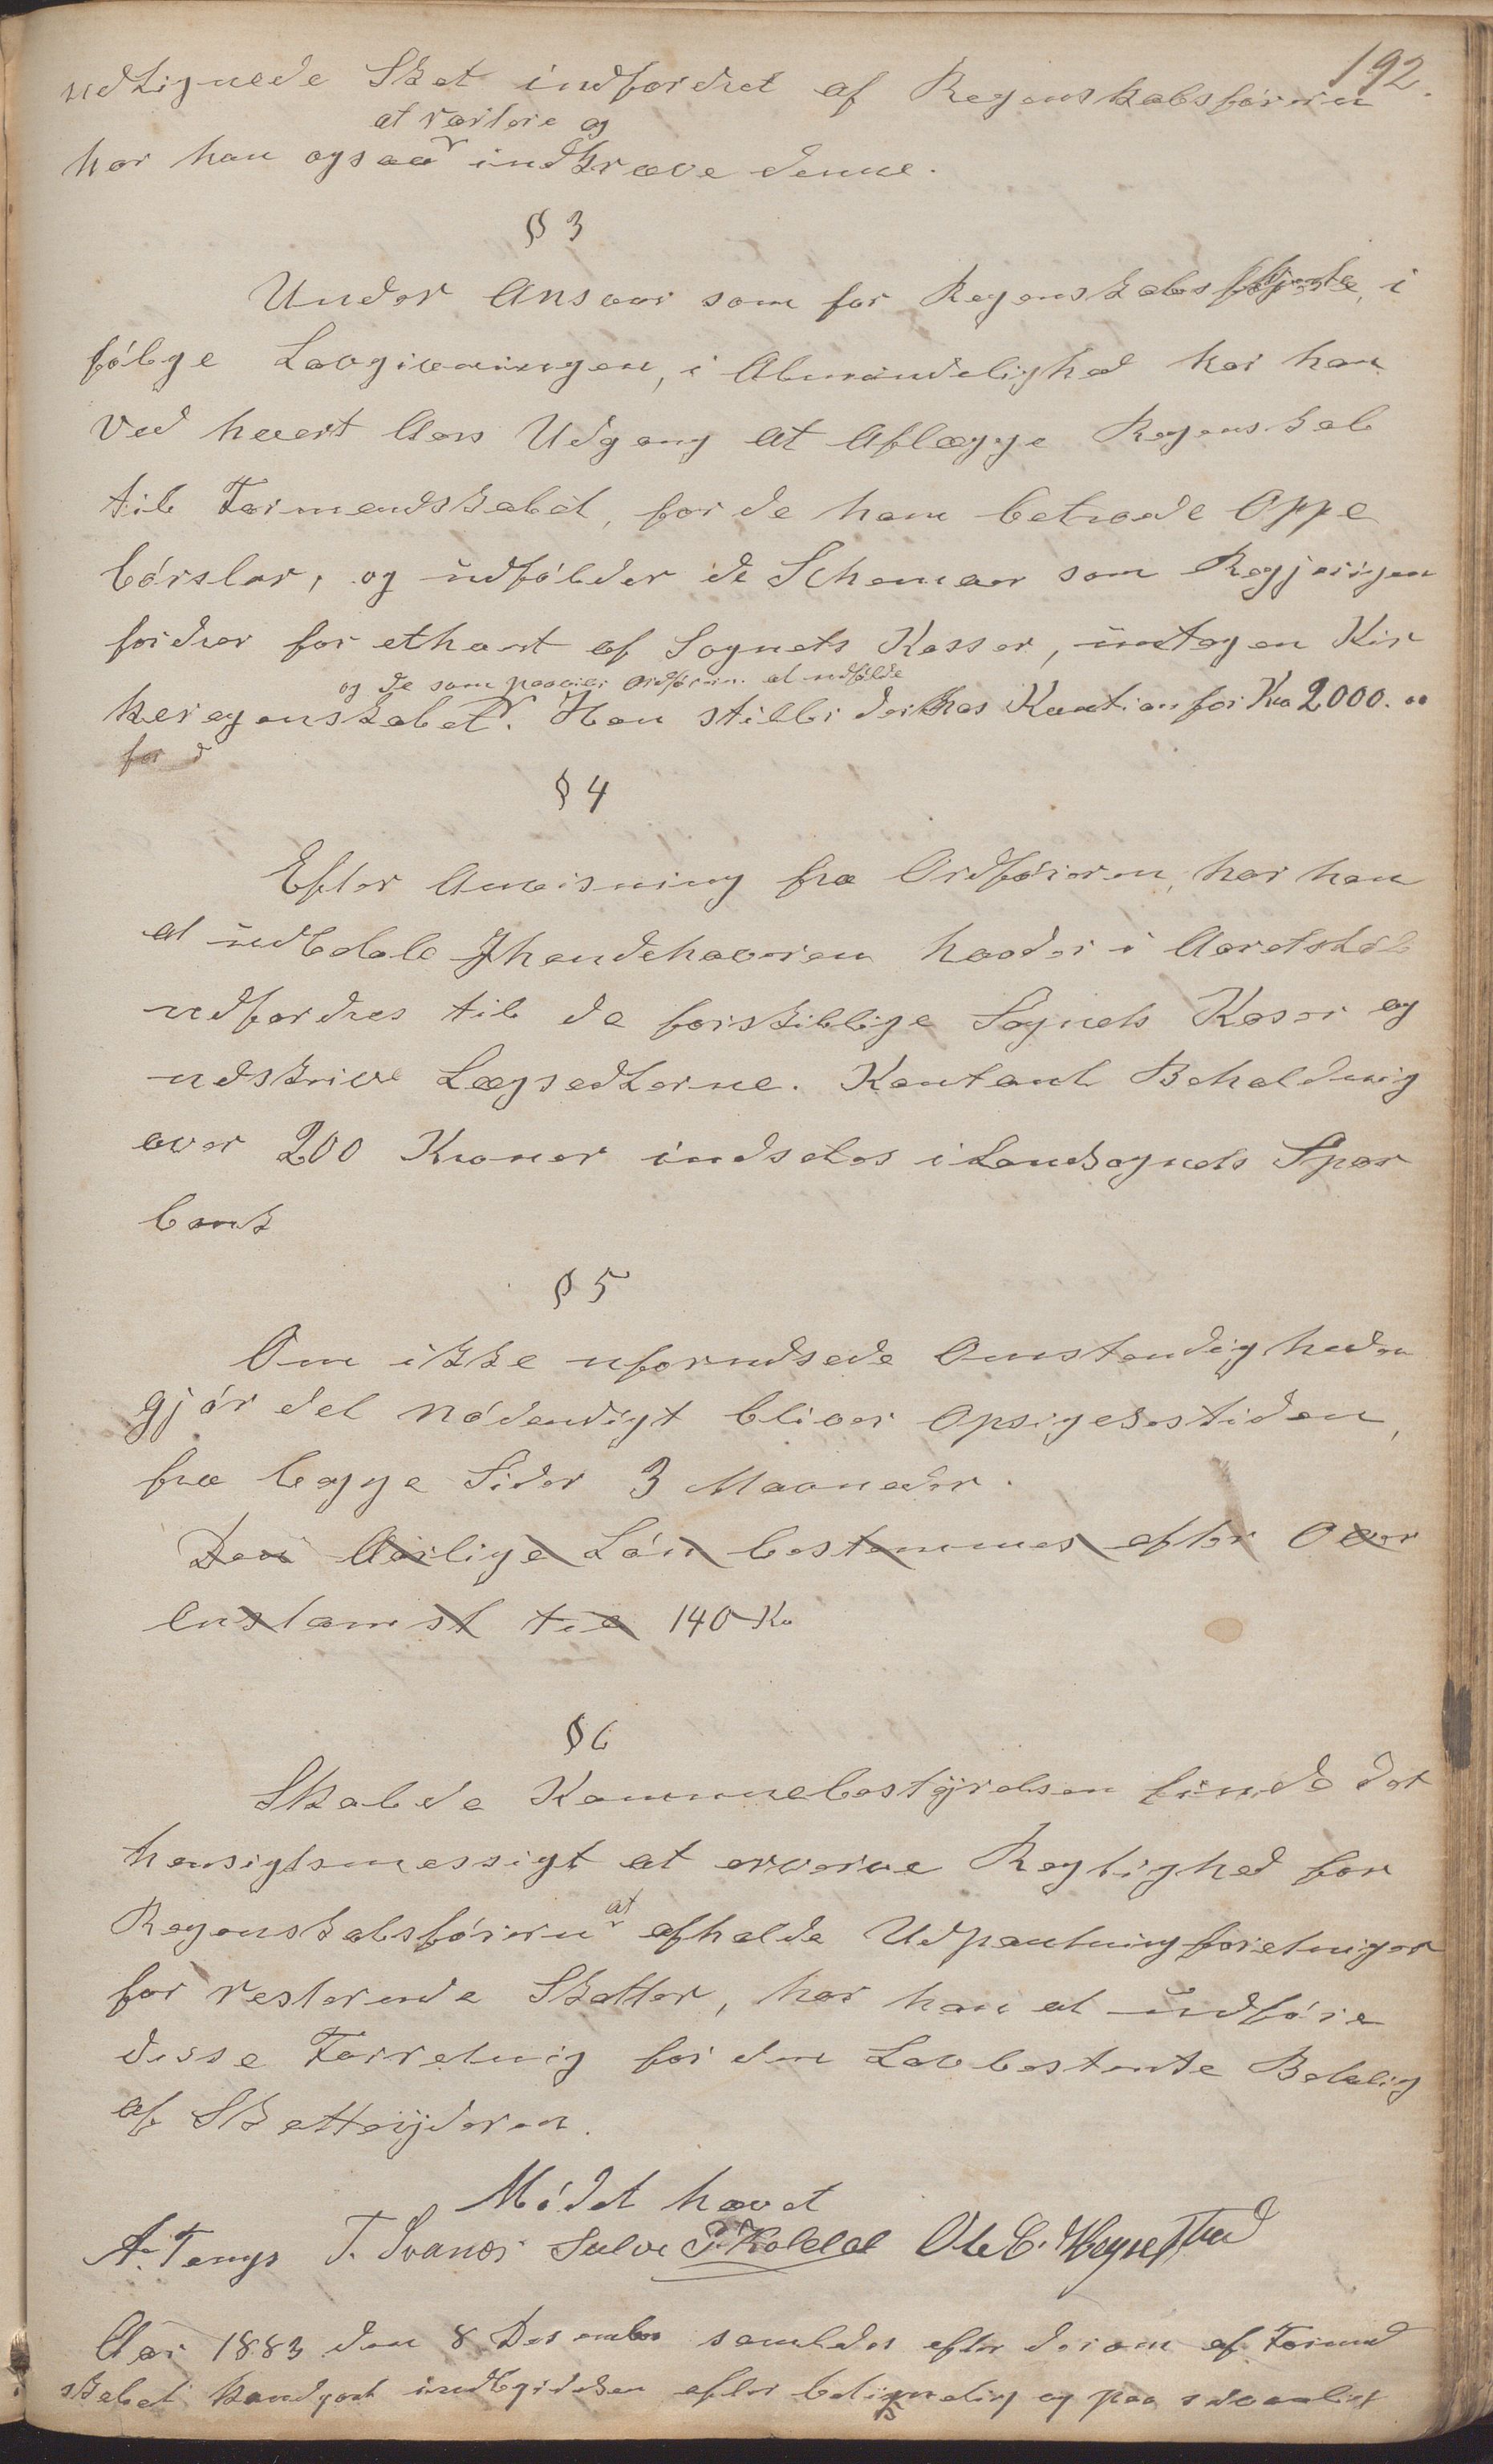 192.
udlignede Skat indfordret af Regenskabsføreren
at vartere og
har han ogsaa indkræve denne.
§ 3
Under Ansvar som for Regenskabs i
følge Lovgivningen, i Almindelighed har han
ved hvert Aars Udgang at Aflægge Regenskab
til Formendskabet, for de ham betroede Oppe
børsler, og udfølder de Schemaer som Regjerigen
fordrer for ethvert af Sognets Kasser, untagen Kir
og de som paaviler Ordføreren at udfølde
keregenskabet. Han stiller derhos Kaution for Kr 2000.00
for d
§ 4
Efter Anvisning fra Ordføreren, har han
at udbetale Ihendehaveren hvad der i Aarets Løb
udfordres til de forskjillige Sognets Kaser og
udskrive Lægsedlerne. Kontant Beholdning
over 200 Kroner indsetes i Landsognets Spar
bank
§ 5
Om ikke uforudsede Omstendigheder
gjør det nødvendigt bliver Opsigelsestiden,
fra begge Sider 3 Maaneder.
Den Aarlige Løn bestemmes efter Over
enskomst til 140 Kr
§ 6
Skulde Kommunebestyrelsen finde det
hensigtsmessigt at erverve Regtighed for
at
Regenskabsføreren afholde Udpantningforetninger
for resterende Skatter, har han at udføre
disse Forretning for den Lovbestemte Betaling
af Skatteyderen.
Mødet hævet
A. Tengs T. Svanes Salve Ole C. Hegrestad
Aar 1883 den 8 Desember samledes efter derom af Formend
skabet kundgort indbydelsen efter betimelig og paa sedvanligt